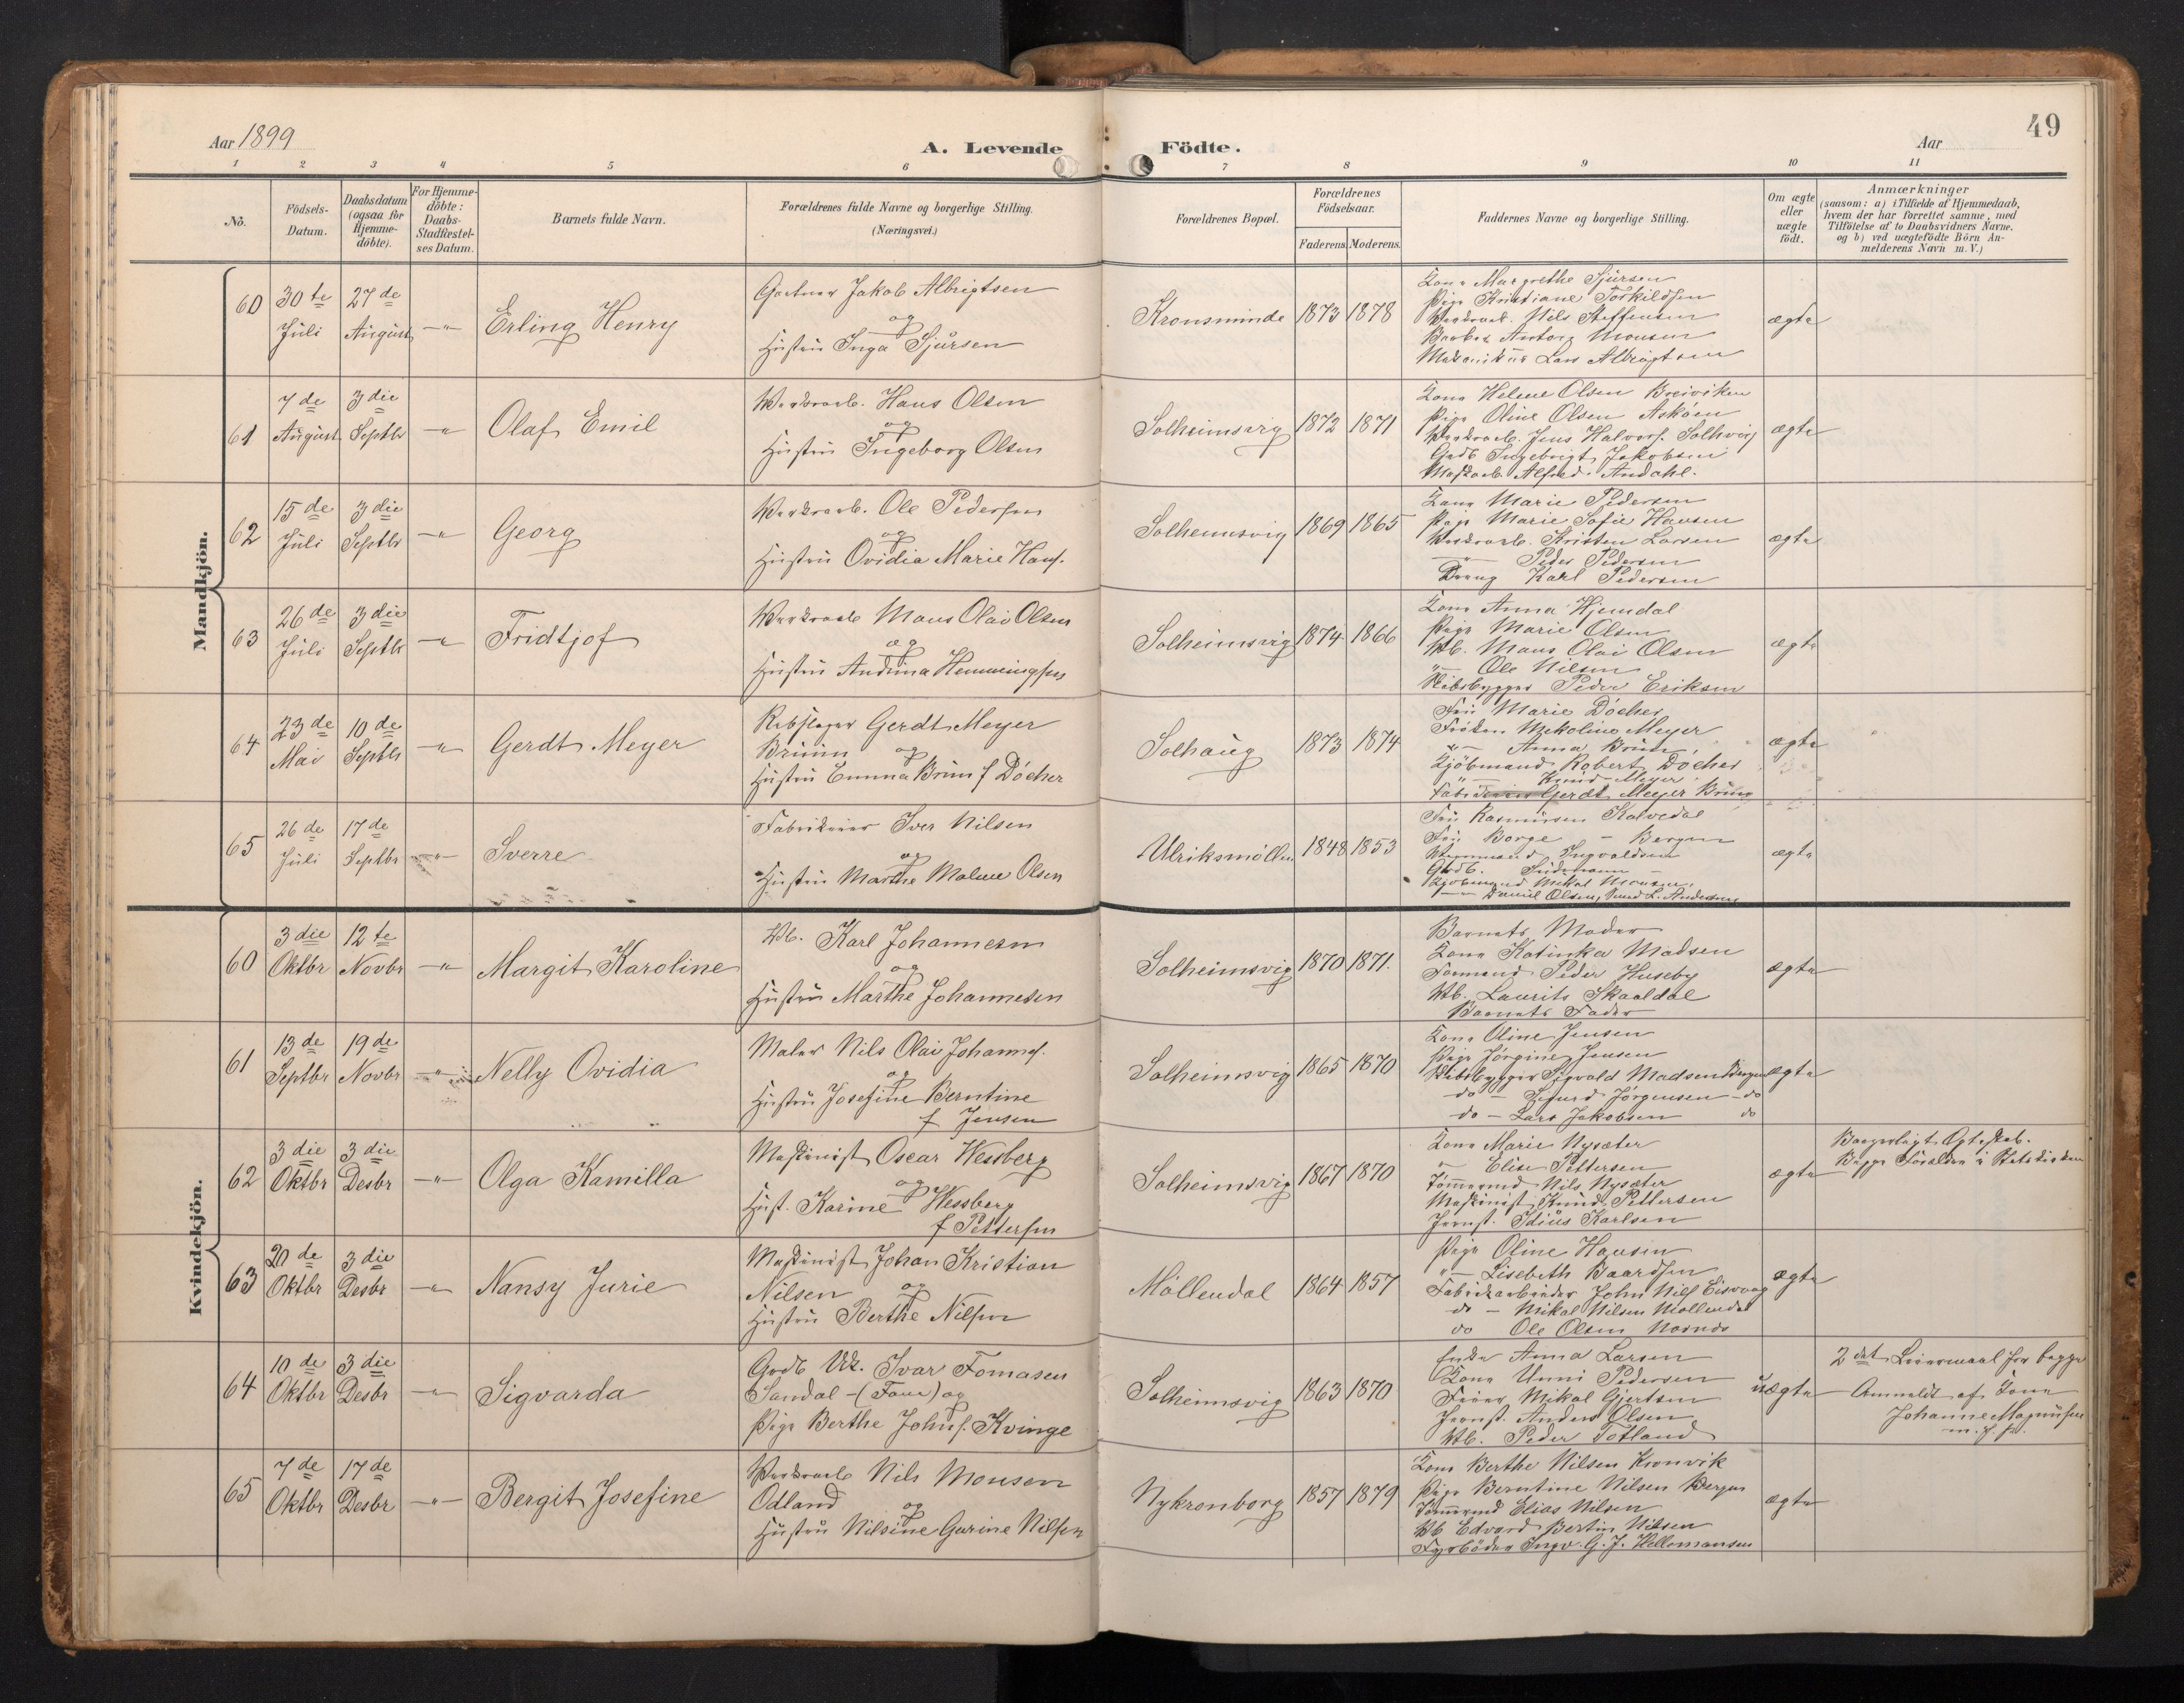 Aar 1899
A. Levende Födte.
Aar
49
1 2 3 4 5 6 7 8 9 10 11
No.
Födsels-
Datum.
Daabsdatum
(ogsaa for
Hjemme-
döbte).
For Hjemme-
döbte:
Daabs-
Stadfæstel-
ses Datum.
Barnets fulde Navn.
Forældrenes fulde Navne og borgerlige Stilling.
(Næringsvei.)
Forældrenes Bopæl.
Forældrenes
Födselsaar.
Faderens. Moderens.
Faddernes Navne og borgerlige Stilling.
Om ægte
eller
uægte
födt.
Anmærkninger
(saasom: a) i Tilfælde af Hjemmedaab,
hvem der har forrettet samme, med
Tilföielse af to Daabsvidners Navne.
og b) ved uægtefödte Börn An-
melderens Navn m. V.)
Mandkjön.
60
30te
Juli
27de
August
Erling Henry
Gartner Jakob Albrigtsen
og
Hustru Inga Sjursen
Kronsminde
1873 1878
Kone Margrethe Sjursen
Pige Kristiane Torkildsen
Værksarb. Nils Steffensen
Anton Monsen
Lars Albrigtsen
ægte
61
7de
August
3die
Septbr
Olaf Emil
Værksarb. Hans Olsen
og
Hustru Ingeborg Olsen
Solheimsvig
1872 1871
Kone Helene Olsen Breiviken
Pige Oline Olsen Asköen
Værksarb. Jens Halvors. Solhvig
Ingebrigt Jakobsen
Alfred Andahl.
ægte
62
15de
Juli
3die
Septbr
Georg
Værksarb. Ole Pedersen
og
Hustru Ovidia Marie Hans.
Solheimsvig
1869 1865
Kone Marie Pedersen
Pige Marie Sofie Hansen
Værksarb. Kristen Larsen
Peder Pedersen
Dreng Karl Pedersen
ægte
63
26de
Juli
3die
Septbr
Fridtjof
Værksarb Mons Olai Olsen
og
Hustru Andrina Hemmingsen
Solheimsvig
1874 1866
Kone Anna Hjemdal
Pige Marie Olsen
Vb. Mons Olai Olsen
Ole Nilsen
Skibsbygger Peder Eriksen
ægte
64
23de
Mai
10de
Septbr
Gerdt Meyer
Rebslager Gerdt Meyer
Bruun og
Hustru Emma Bruun f Döcher
Solhaug
1873 1874
Fru Marie Döcher
Fröken Nikoline Meyer
Anna Bruun
Kjöbmand Robert Döcher
Knud Meyer
Gerdt Meyer Bruun
ægte
65
26de
Juli
17de
Septbr
Sverre
Fabrikeier Iver Nilsen
og
Hustru Marthe Malene Olsen
Ulriksmöllen
1848 1853
Fru Rasmussen Kalvedal
Fru Borge - Bergen
Ingvaldsen
Kjöbmand Mikal Monsen
Daniel Olsen, L. Andersen
ægte
Kvindekjön.
60
3die
Oktbr
12te
Novbr
Margit Karoline
Vb. Karl Johannesen
og
Hustru Marthe Johannesen
Solheimsvig
1870 1871.
Barnets Moder
Kone Katinka Madsen
Formand Peder Huseby
Vb. Laurits Skaaldal
Barnets Fader
ægte
61
13de
Septbr
19de
Novbr
Nelly Ovidia
Maler Nils Olai Johannes.
og
Hustru Josefine Berntine
f Jensen
Solheimsvig
1865 1870
Kone Oline Jensen
Pige Jörgine Jensen
Skibsbygger Sigvald Madsen Bergen
do - Sigurd Jörgensen - do
do - Lars Jakobsen do
ægte
62
3die
Oktbr
3die
Desbr
Olga Kamilla
Maskinist Oscar Wessberg
og
Hust. Karine Wessberg
f Pettersen
Solheimsvig
1867 1870
Kone Marie Nysæter
Elise Pettersen
Tömmermd Nils Nysæter
Maskinist Knud Pettersen
Jernst. Idius Karlsen
ægte
Borgerligt Egteskab.
Begge Forældre i Statskirken
63
20de
Oktbr
3die
Desbr
Nansy Jurie
Maskinist Johan Kristian
Nilsen og
Hustru Berthe Nilsen
Möllendal
1864 1857
Pige Oline Hansen
Lisebeth Baardsen
Fabrikarbeider John Nils Eisvaag
do - Mikal Nilsen Möllendal
do Ole Olsen
ægte
64
10de
Oktbr
3die
Desbr
Sigvarda
Ivar Tomasen
Sandal - (Fane) og
Pige Berthe Johns. Kvinge
Solheimsvig
1863 1870
Enke Anna Larsen
Kone Unni Pedersen
Mikal Gjertsen
Jernst. Anders Olsen
Vb. Peder Totland
uægte
2det Leiermaal for begge
Anmeldt af Kone
Johanne Magnusen
65
7de
Oktbr
17de
Desbr
Bergit Josefine
Værksarb Nils Monsen
Odland og
Hustru Nilsine Garine Nilsen
Nykronborg
1857 1879
Kone Berthe Nilsen Kronvik
Pige Berntine Nilsen Bergen
Tömmermd Elias Nilsen
Vb Edvard Bertin Nilsen
Fyrböder Ingv. G. J. Hellemansen
ægte